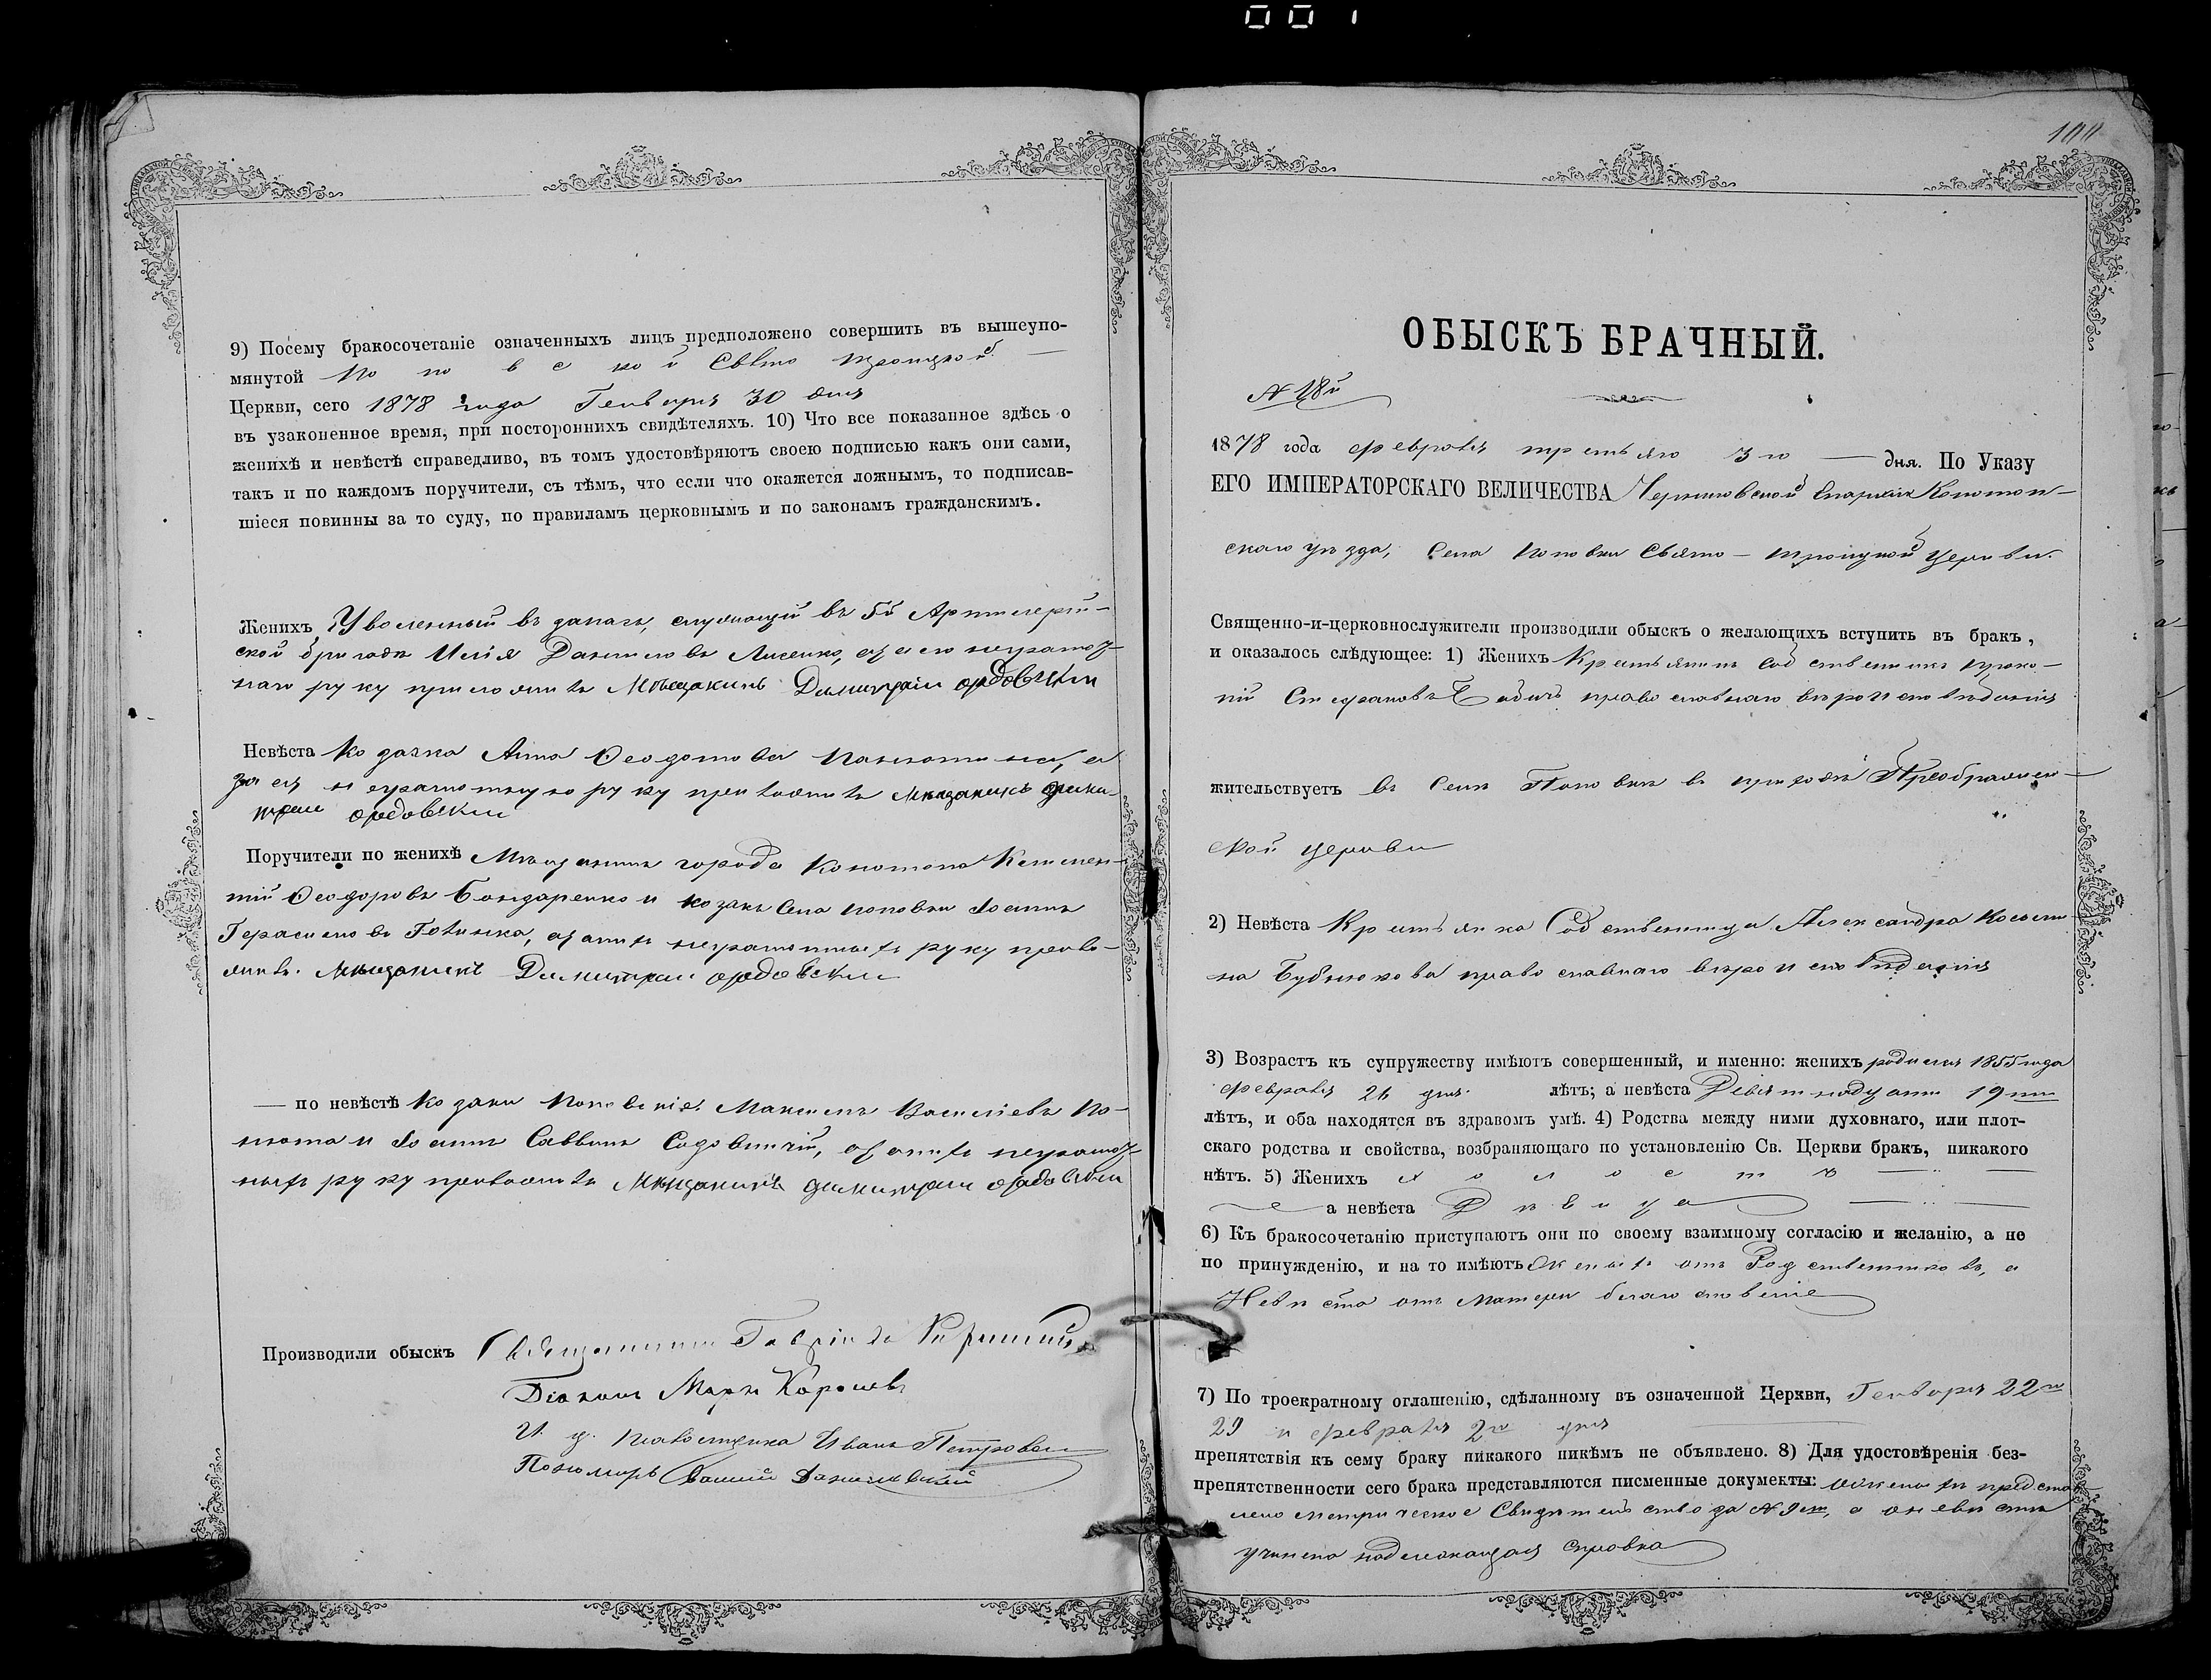 9) Посему бракосочетаніе означенныхъ лицъ предположено совершить въ вышеупо-
мянутой Поповской Свято Троицкой
Церкви, сего 1878 года Генваря 30 дня
въ узаконенное время, при постороннихъ свидѣтеляхъ. 10) Что все показанное здѣсь о
женихѣ и невѣстѣ справедливо, въ томъ удостовѣряютъ своею подписью какъ они сами,
такъ и по каждомъ поручители, съ тѣмъ, что если что окажется ложнымъ, то подписав-
шіеся повинны за то суду, по правиламъ церковнымъ и по законамъ гражданскимъ.
Женихъ Уволенный въ запасъ, служащій въ 5й Артилерій-
ской бригадѣ Илія Даниловъ Лисенко, а за его неграмот-
наго руку приложилъ Мѣщанинъ Димитрій
Невѣста Козачка Анна Ѳеодотова а
за ея неграмотную руку приложилъ Мѣщанинъ Дими-
трій
Поручители по женихѣ Мѣщанинъ города Конотопа Климен-
тій Ѳеодоровъ Бондаренко и козакъ Села Поповки Іоаннъ
Герасимовъ а за нихъ неграмотныхъ руку прило-
жилъ Мѣщанинъ Димитрій
— по невѣстѣ Козаки Поповскіе Максимъ Василіевъ По-
и Іоаннъ Саввинъ Садовничій, а за нихъ неграмот-
ныхъ руку приложилъ Мѣщанинъ Димитрій
Производили обыскъ Священникъ Гавріилъ
Діаконъ Марко
И. д. псаломщика Иванъ Петровскій
Пономарь
100
ОБЫСКЪ БРАЧНЫЙ.
№ 18й
1878 года февраля третьяго 3го — дня. По Указу
ЕГО ИМПЕРАТОРСКАГО ВЕЛИЧЕСТВА Черниговской Епархіи Конотоп-
скаго уѣзда, Села Поповки Свято-Троицкой Церкви.
Священно-и-церковнослужители производили обыскъ о желающихъ вступить въ бракъ,
и оказалось слѣдующее: 1) Женихъ Крестьянинъ Собственникъ Проко-
пій Стефановъ православнаго вѣроисповѣданія
жительствуетъ въ Селѣ Поповкѣ въ приходѣ Преображен-
ской церкви
2) Невѣста Крестьянка Собственница Александра Косьми-
на Бубликова православнаго вѣроисповѣданія
3) Возрастъ къ супружеству имѣютъ совершенный, и именно: женихъ родился 1855 года
февраля 21 дня лѣтъ; а невѣста Девятнадцати 19ти
лѣтъ, и оба находятся въ здравомъ умѣ. 4) Родства между ними духовнаго, или плот-
скаго родства и свойства, возбраняющаго по установленію Св. Церкви бракъ, никакого
нѣтъ. 5) Женихъ холостъ
а невѣста Дѣвица
6) Къ бракосочетанію приступаютъ они по своему взаимному согласію и желанію, а не
по принужденію, и на то имѣютъ Женихъ отъ Родственниковъ, а
Невѣста отъ Матери благословеніе
7) По троекратному оглашенію, сдѣланному въ означенной Церкви, Генваря 22го
29 и февраля 2го дня
препятствія къ сему браку никакого никѣмъ не объявлено. 8) Для удостовѣренія без-
препятственности сего брака представляются писменные документы: о женихѣ представ-
лено метрическое Свидѣтельство за № 9м, а о невѣстѣ
учинена надлежащая справка